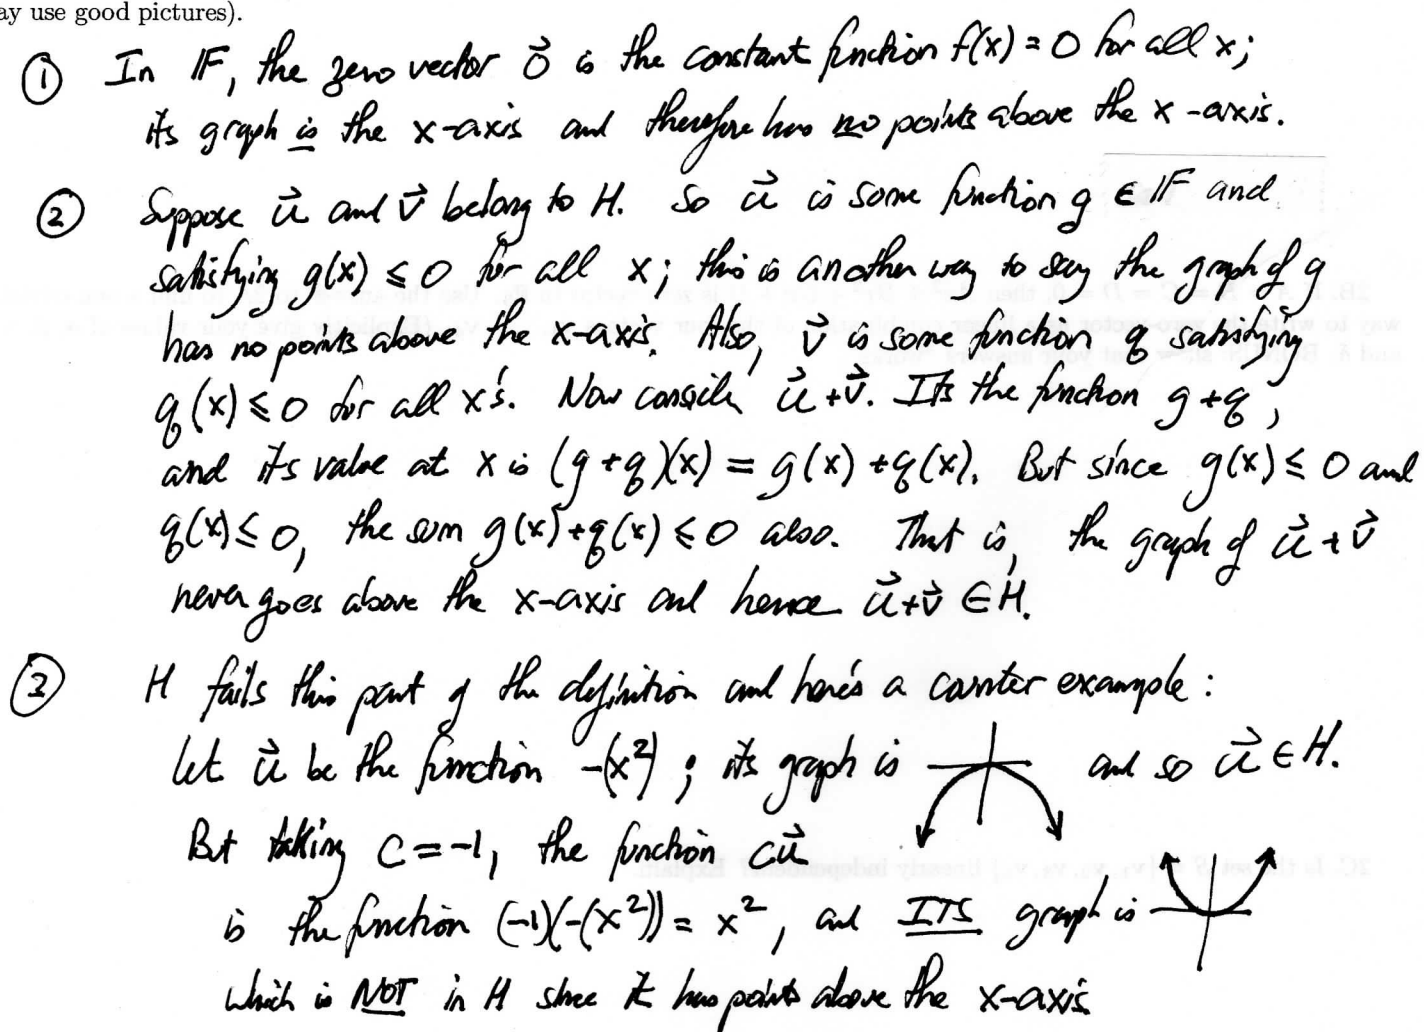 ay use good pictures).
① In 𝔽, the zero vector 0⃗ is the constant function f(x) = 0 for all x;
its graph is the x-axis and therefore has no points above the x-axis.
② Suppose u⃗ and v⃗ belong to H. So u⃗ is some function g ∈ 𝔽 and
satisfying g(x) ≤ 0 for all x; this is another way to say the graph of g
has no points above the x-axis. Also, v⃗ is some function q satisfying
q(x) ≤ 0 for all x's. Now consider u⃗ + v⃗. It's the function g + q,
and its value at x is (g + q)(x) = g(x) + q(x). But since g(x) ≤ 0 and
q(x) ≤ 0, the sum g(x) + q(x) ≤ 0 also. That is, the graph of u⃗ + v⃗
never goes above the x-axis and hence u⃗ + v⃗ ∈ H.
③ H fails this part of the definition and here's a counter example:
Let u⃗ be the function -(x²); its graph is and so u⃗ ∈ H.
But taking c = -1, the function cu⃗
is the function (-1)(-(x²)) = x², and ITS graph is
which is NOT in H since it has points above the x-axis